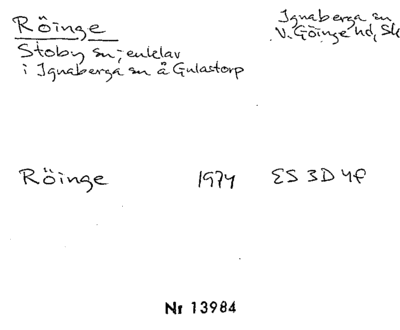 Röinge
Ignaberga sn
V. Göinge hd, Sk
Stoby sn; enklav
i Ignaberga sn å Gulastorp
Röinge 1974 ES 3D 4f
Nr 13984